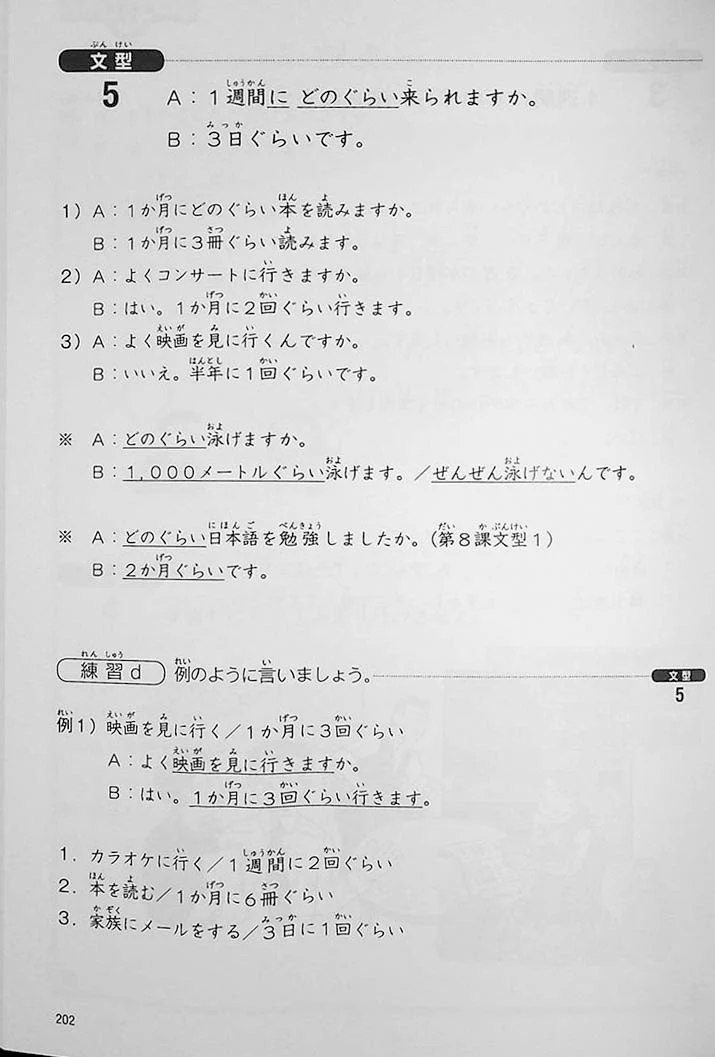 文型
5 A：1週間に どのぐらい来られますか。
B：3日ぐらいです。
1）A：1か月にどのぐらい本を読みますか。
B：1か月に3冊ぐらい読みます。
2）A：よくコンサートに行きますか。
B：はい。1か月に2回ぐらい行きます。
3）A：よく映画を見に行くんですか。
B：いいえ。半年に1回ぐらいです。
※ A：どのぐらい泳げますか。
B：1,000メートルぐらい泳げます。／ぜんぜん泳げないんです。
※ A：どのぐらい日本語を勉強しましたか。（第8課文型1）
B：2か月ぐらいです。
練習d 例のように言いましょう。 文型
5
例1）映画を見に行く／1か月に3回ぐらい
A：よく映画を見に行きますか。
B：はい。1か月に3回ぐらい行きます。
1．カラオケに行く／1週間に2回ぐらい
2．本を読む／1か月に6冊ぐらい
3．家族にメールをする／3日に1回ぐらい
202